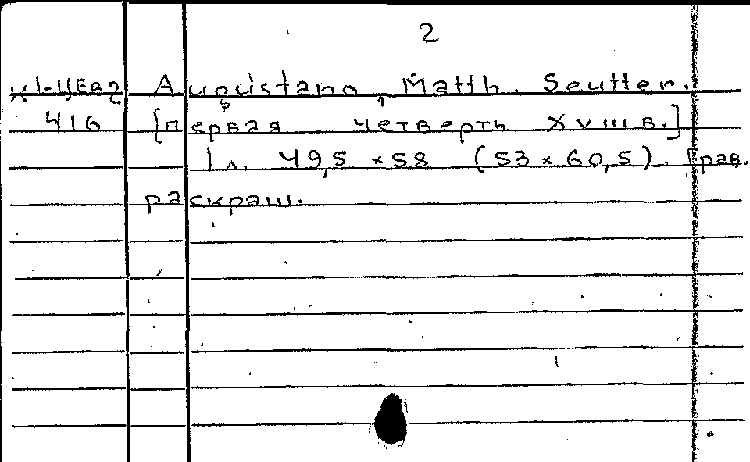 2
К1-ЦЕв2 Augustano, Matth. Seutter.
416 [первая четверть XVIII в.]
1 л. 49,5 × 58 (53 × 60,5). Грав.
раскраш.